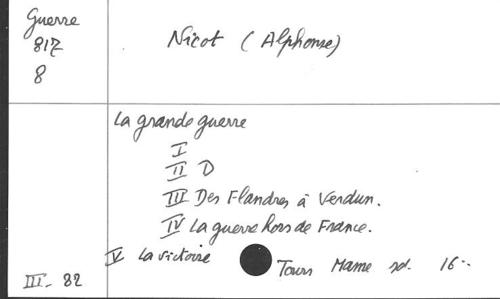 Guerre
817
8
Nicot (Alphonse)
La grande guerre
I
II D
III Des Flandres à Verdun.
IV La guerre hors de France.
V La victoire
Tours Mame sd. 16..
III- 82